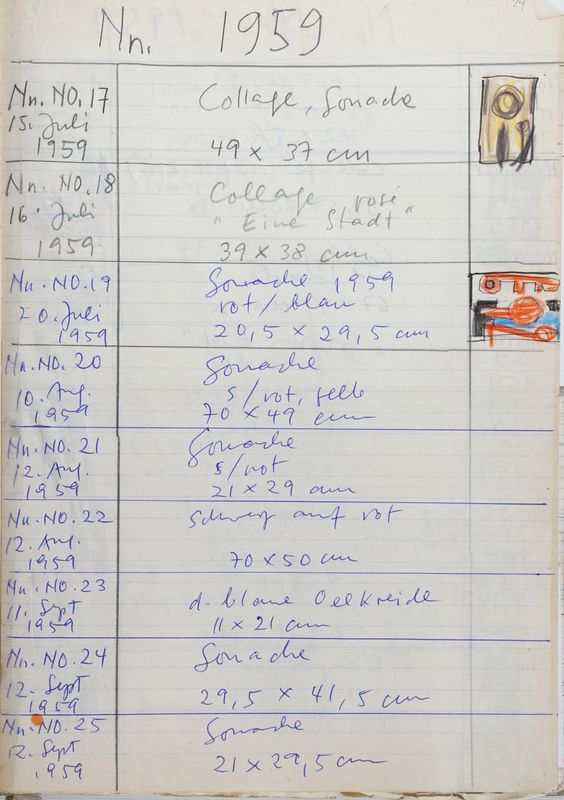 Nn. 1959
Nn. NO. 17
15. Juli
1959
Collage, Gouache
49 x 37 cm
Nn. NO. 18
16. Juli
1959
Collage rosé
"Eine Stadt"
39 x 38 cm
Nn. NO. 19
20. Juli
1959
Gouache 1959
rot / blau
20,5 x 29,5 cm
Nn. NO. 20
10. Aug.
1959
Gouache
s / rot, gelb
70 x 49 cm
Nn. NO. 21
12. Aug.
1959
Gouache
s / rot
21 x 29 cm
Nn. NO. 22
12. Aug.
1959
schwarz auf rot
70 x 50 cm
Nn. NO. 23
11. Sept
1959
d. blaue Oelkreide
11 x 21 cm
Nn. NO. 24
12. Sept
1959
Gouache
29,5 x 41,5 cm
Nn. NO. 25
12. Sept
1959
Gouache
21 x 29,5 cm